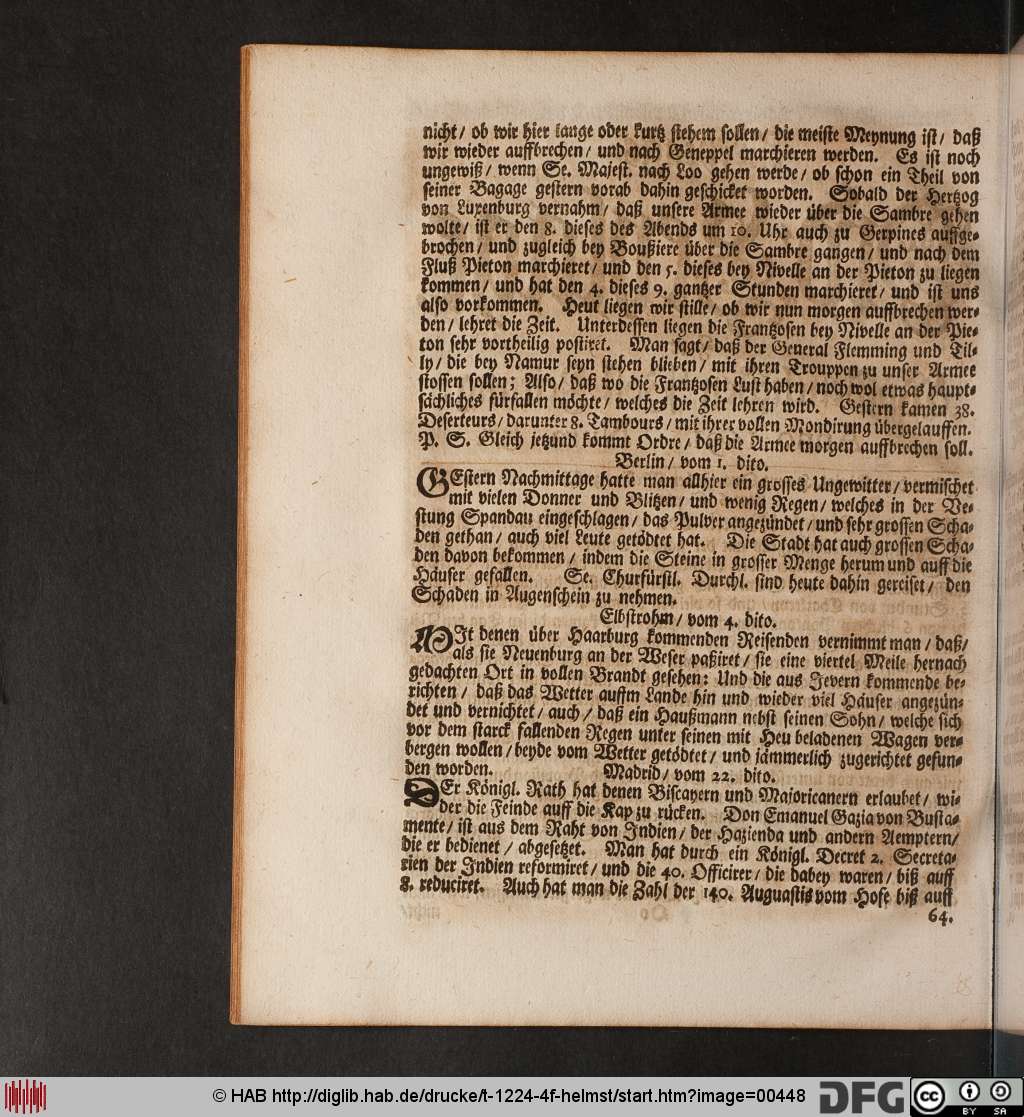 nicht/ ob wir hier lange oder kurtz stehem sollen/ die meiste Meynung ist/ daß
wir wieder auffbrechen/ und nach Geneppel marchieren werden. Es ist noch
ungewiß/ wenn Se. Majest. nach Loo gehen werde/ ob schon ein Theil von
seiner Bagage gestern vorab dahin geschicket worden. Sobald der Hertzog
von Luxenburg vernahm/ daß unsere Armee wieder über die Sambre gehen
wolte/ ist er den 8. dieses des Abends um 10. Uhr auch zu Gerpines auffge-
brochen/ und zugleich bey Boußiere über die Sambre gangen/ und nach dem
Fluß Pieton marchieret/ und den 5. dieses bey Nivelle an der Pieton zu liegen
kommen/ und hat den 4. dieses 9. gantzer Stunden marchieret/ und ist uns
also vorkommen. Heut liegen wir stille/ ob wir nun morgen auffbrechen wer-
den/ lehret die Zeit. Unterdessen liegen die Frantzosen bey Nivelle an der Pie-
ton sehr vortheilig postiret. Man sagt/ daß der General Flemming und Til-
ly/ die bey Namur seyn stehen blieben/ mit ihren Trouppen zu unser Armee
stossen sollen; Also/ daß wo die Frantzosen Lust haben/ noch wol etwas haupt-
sächliches fürfallen möchte/ welches die Zeit lehren wird. Gestern kamen 38.
Deserteurs/ darunter 8. Tambours/ mit ihrer vollen Mondirung übergelauffen.
P. S. Gleich jetzund kommt Ordre/ daß die Armee morgen auffbrechen soll.
Berlin/ vom 1. dito.
GEstern Nachmittage hatte man allhier ein grosses Ungewitter/ vermischet
mit vielen Donner und Blitzen/ und wenig Regen/ welches in der Ve-
stung Spandau eingeschlagen/ das Pulver angezündet/ und sehr grossen Scha-
den gethan/ auch viel Leute getödtet hat. Die Stadt hat auch grossen Scha-
den davon bekommen/ indem die Steine in grosser Menge herum und auff die
Häuser gefallen. Se. Churfürstl. Durchl. sind heute dahin gereiset/ den
Schaden in Augenschein zu nehmen.
Elbstrohm/ vom 4. dito.
MIt denen über Haarburg kommenden Reisenden vernimmt man/ daß/
als sie Neuenburg an der Weser paßiret/ sie eine viertel Meile hernach
gedachten Ort in vollen Brandt gesehen: Und die aus Jevern kommende be-
richten/ daß das Wetter auffm Lande hin und wieder viel Häuser angezün-
det und vernichtet/ auch/ daß ein Haußmann nebst seinen Sohn/ welche sich
vor dem starck fallenden Regen unter seinen mit Heu beladenen Wagen ver-
bergen wollen/ beyde vom Wetter getödtet/ und jämmerlich zugerichtet gefun-
den worden. Madrid/ vom 22. dito.
DEr Königl. Rath hat denen Biscayern und Majoricanern erlaubet/ wi-
der die Feinde auff die Kap zu rücken. Don Emanuel Gazia von Busta-
mente/ ist aus dem Raht von Indien/ der Hazienda und andern Aemptern/
die er bedienet/ abgesetzet. Man hat durch ein Königl. Decret 2. Secreta-
rien der Indien reformiret/ und die 40. Officirer/ die dabey waren/ biß auff
8. reduciret. Auch hat man die Zahl der 140. Auguastis vom Hofe biß auff
64.
© HAB http://diglib.hab.de/drucke/t-1224-4f-helmst/start.htm?image=00448
DFG
cc
BY SA